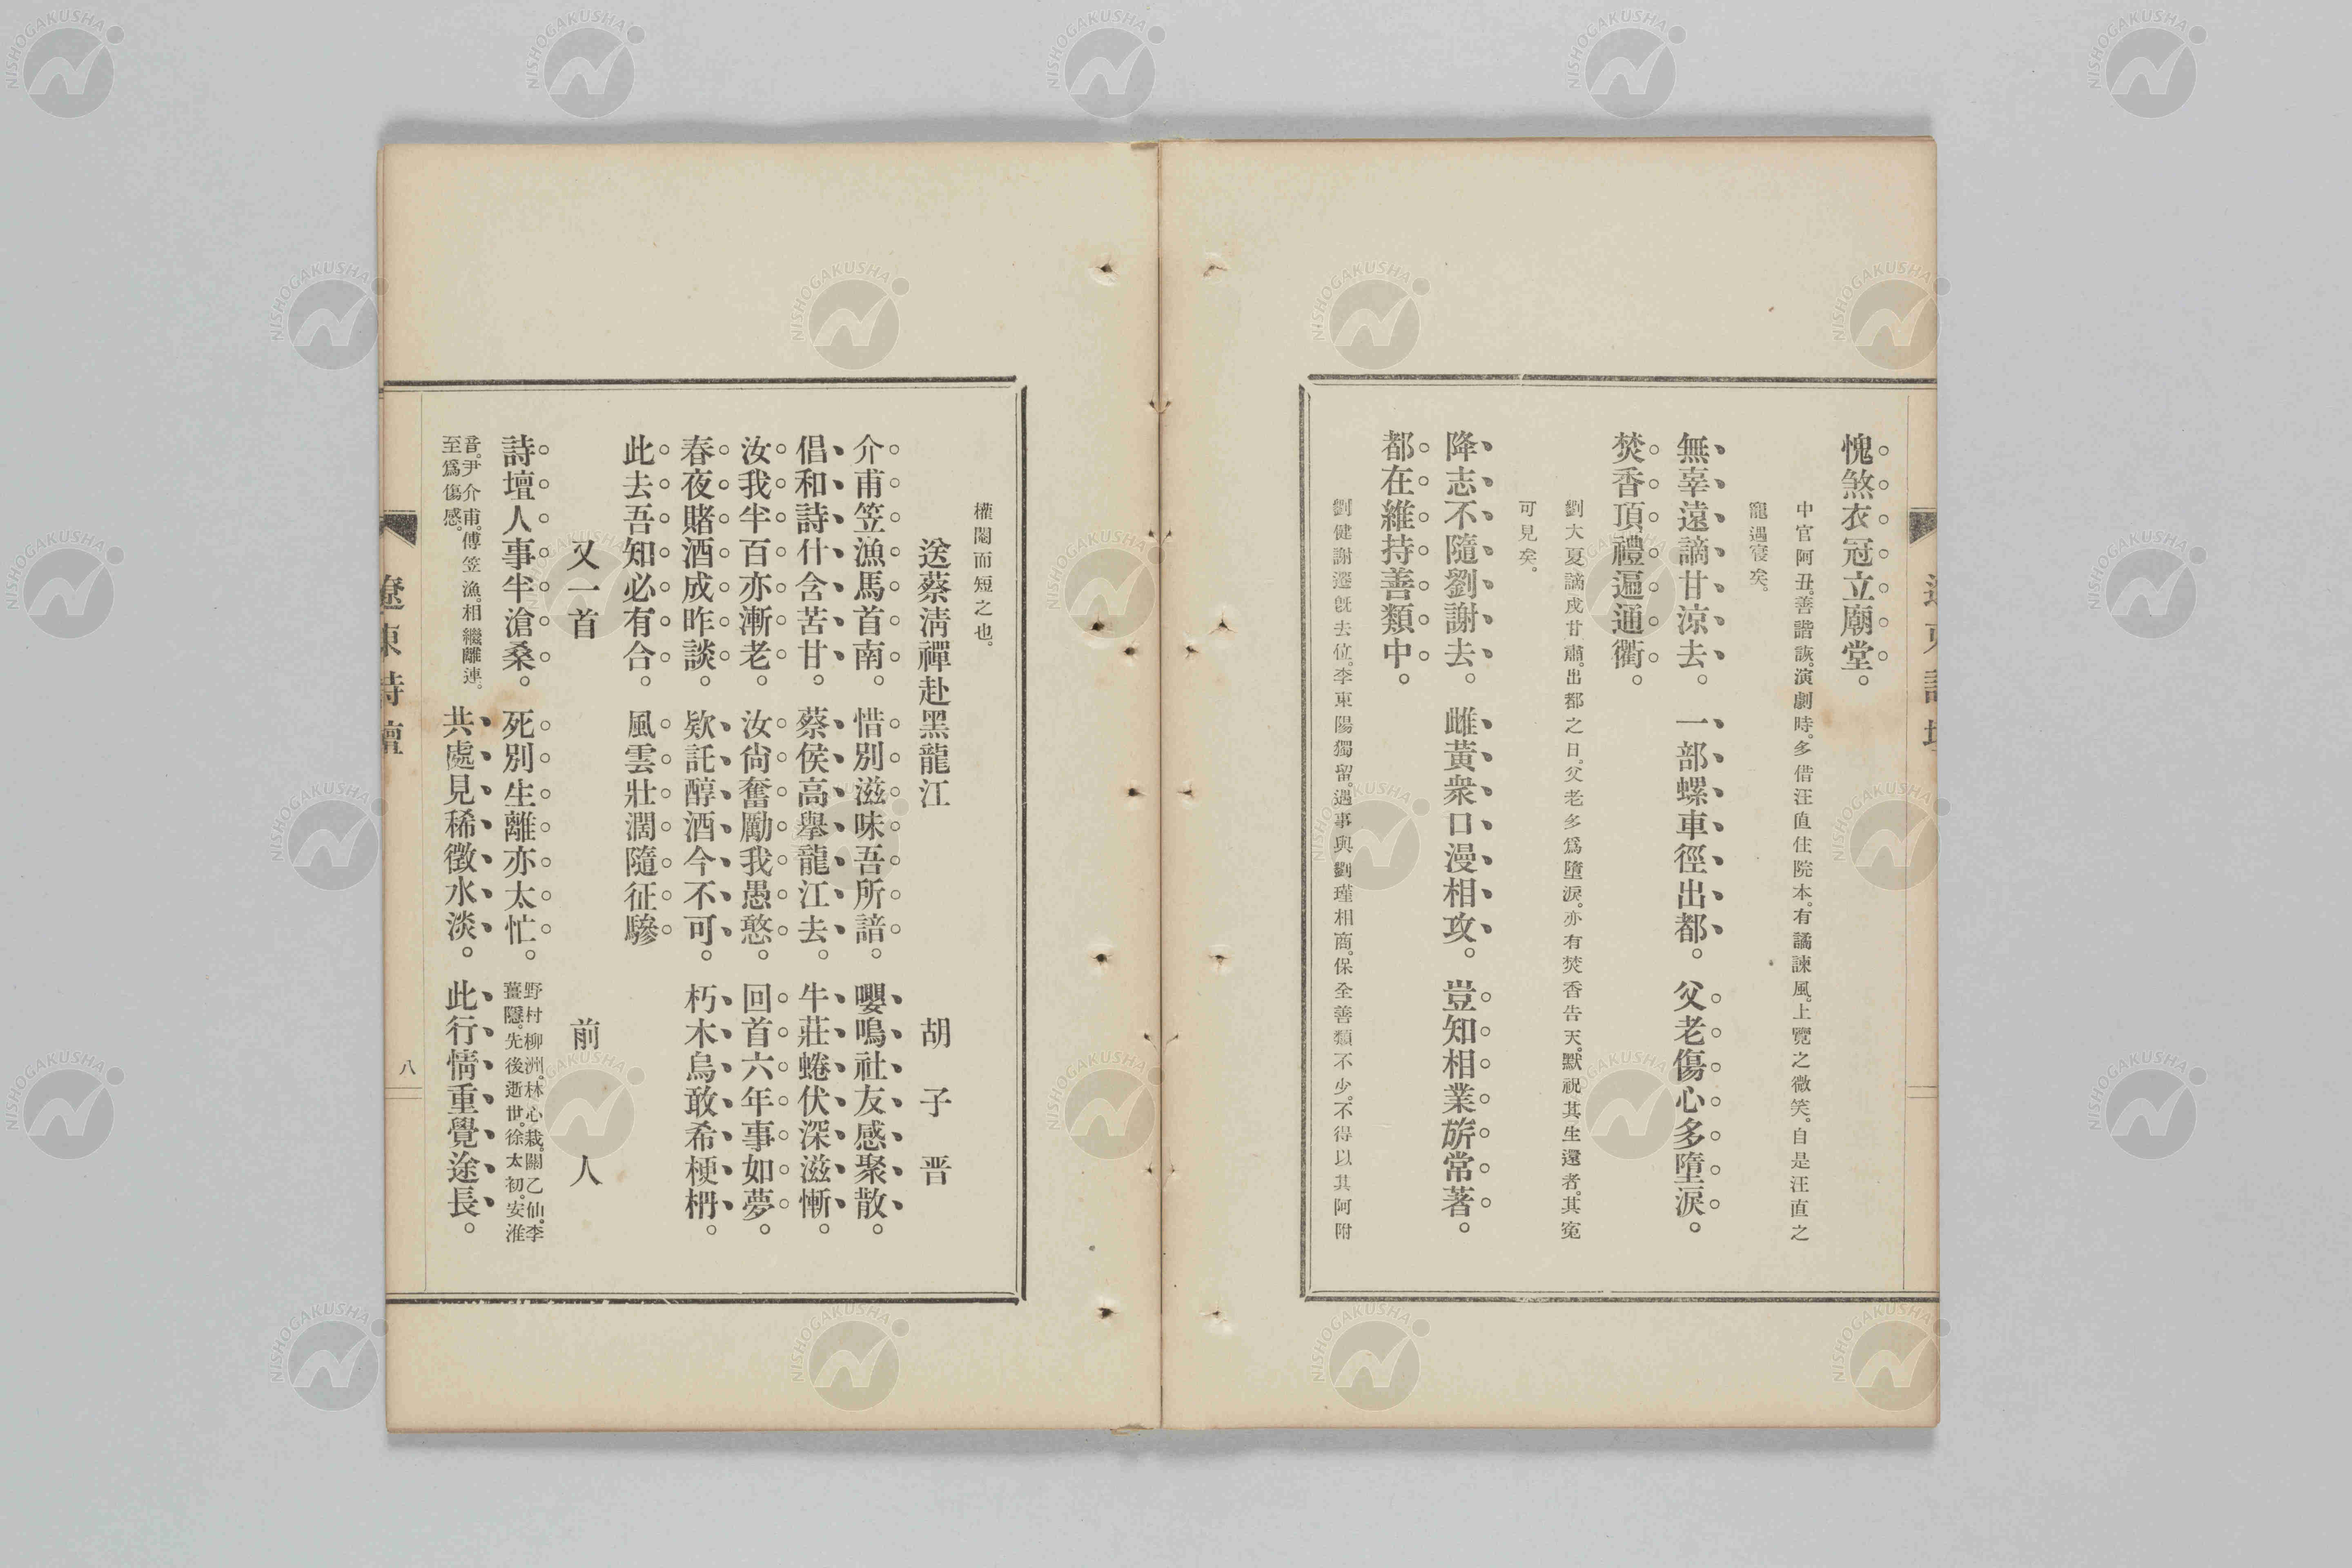 愧煞衣冠立廟堂。
中官阿丑。善諧詼。演劇時。多借汪直住院本。有譎諫風。上覽之微笑。自是汪直之
寵遇衰矣。
無辜遠謫甘涼去。一部螺車徑出都。父老傷心多墮淚。
焚香頂禮遍通衢。
劉大夏謫戍甘肅。出都之日。父老多爲墮淚。亦有焚香告天。默祝其生還者。其寃
可見矣。
降志不隨劉謝去。雌黃衆口漫相攻。豈知相業旂常著。
都在維持善類中。
劉健謝遷旣去位。李東陽獨留。遇事與劉瑾相商。保全善類不少。不得以其阿附
權閹而短之也。
送蔡淸禪赴黑龍江　胡子晋
介甫笠漁馬首南。惜別滋味吾所諳。嚶鳴社友感聚散。
倡和詩什含苦甘。蔡侯高擧龍江去。牛莊蜷伏深滋慚。
汝我半百亦漸老。汝尙奮勵我愚憨。回首六年事如夢。
春夜賭酒成昨談。欵託醇酒今不可。朽木烏敢希梗枏。
此去吾知必有合。風雲壯濶隨征驂
又一首　前人
詩壇人事半滄桑。死別生離亦太忙。野村柳洲。林心栽。關乙仙。李
薑隱。先後逝世。徐太初。安淮
音。尹介甫。傅笠漁。相繼離連。
至爲傷感。共處見稀徵水淡。此行情重覺途長。
遼東詩壇
八
NISHOGAKUSHA